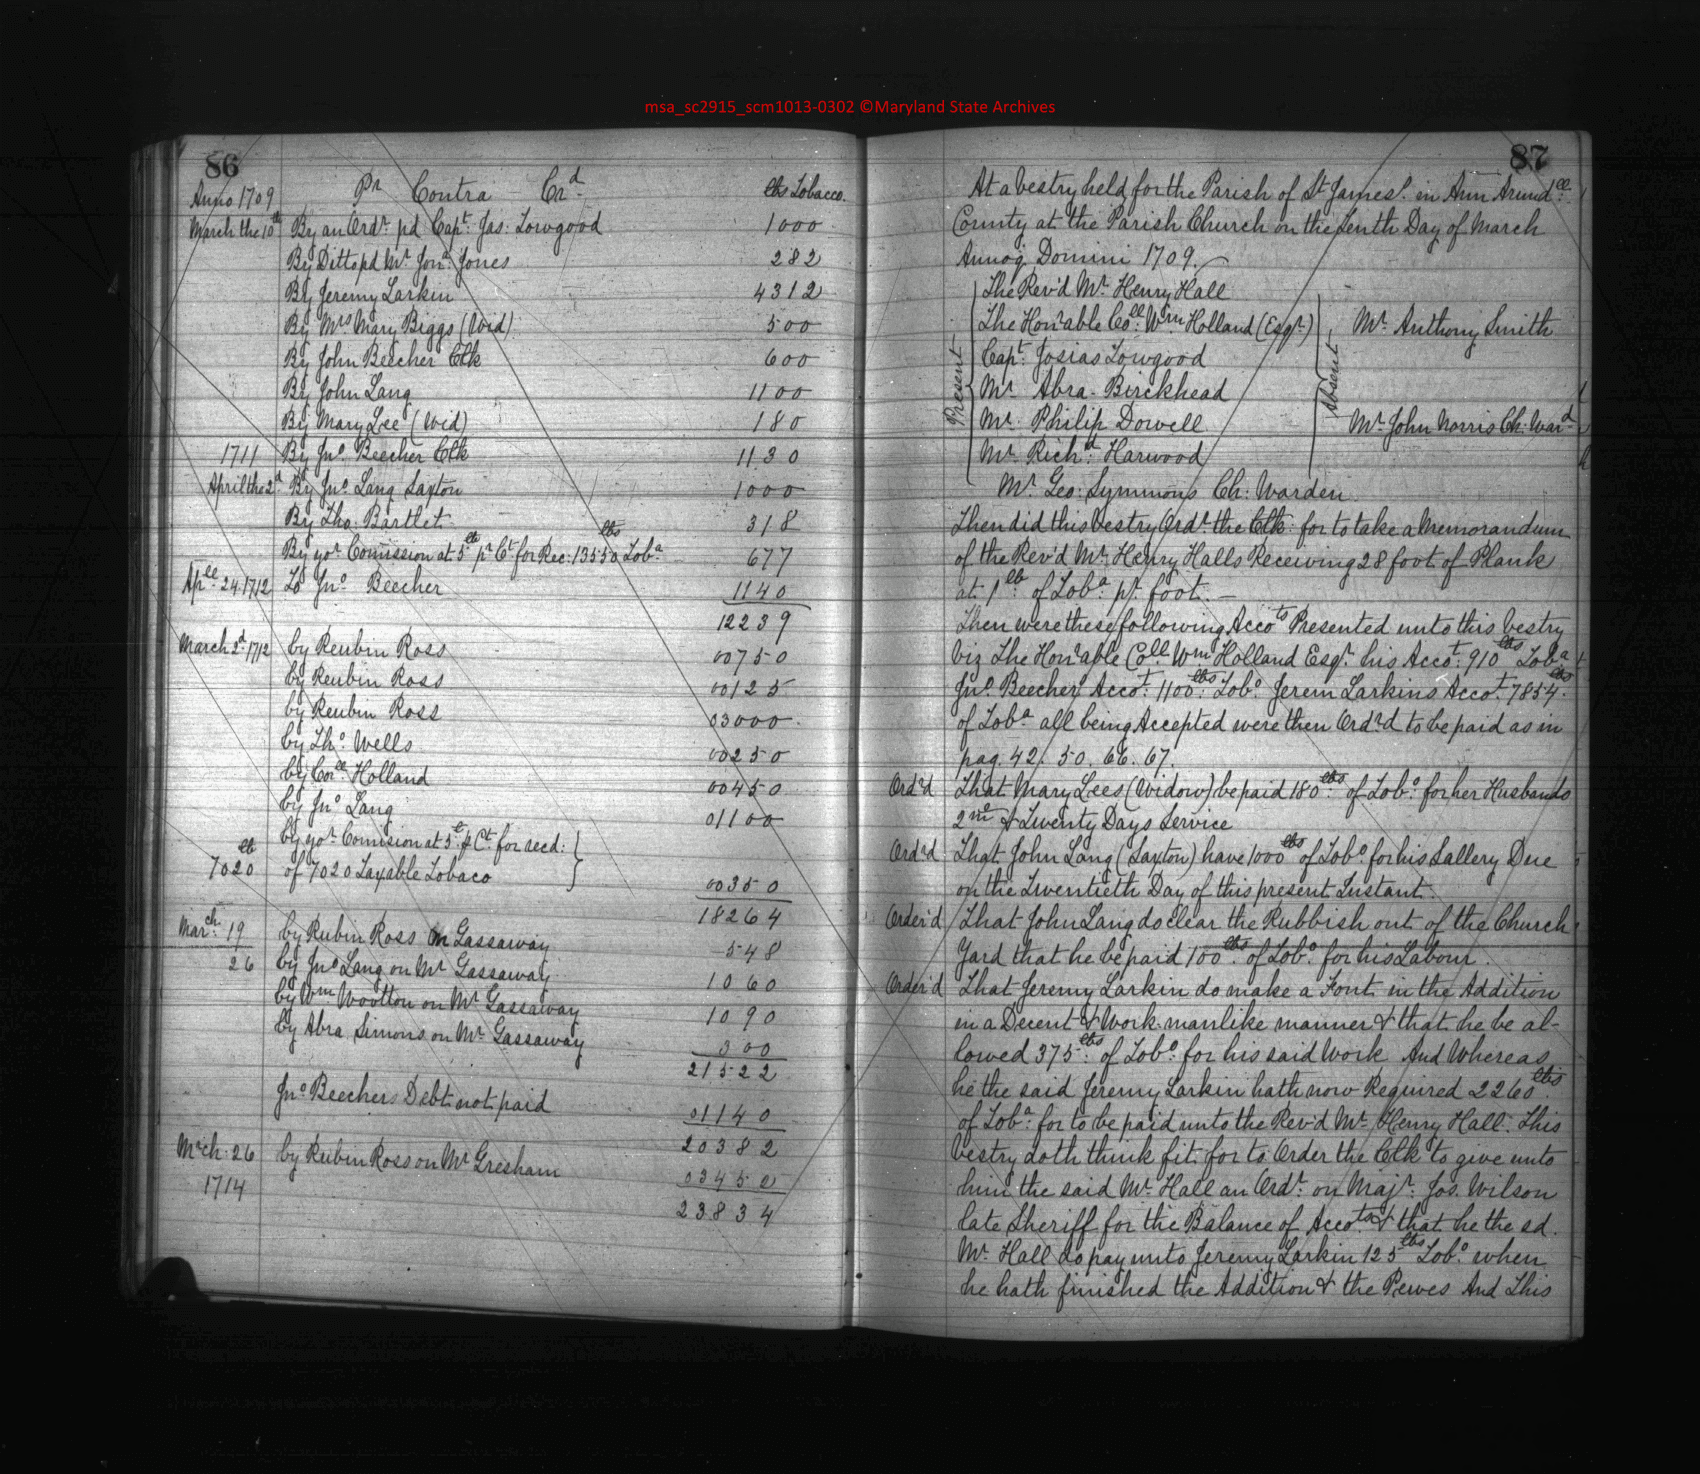 msa_sc2915_scm1013-0302 ©Maryland State Archives
86
Anno 1709 Pr Contra Crd lbs Tobacco.
March the 10th By an Ordr pd Capt Jas: Lowgood 1000
By Ditto pd Mr Jon. Jones 282
By Jeremy Larkin 4312
By Mrs Mary Biggs (Wid) 500
By John Beecher Clk 600
By John Lang 1100
By Mary Lee (Wid) 180
1711 By Jno. Beecher Clk 1130
April the 2d By Jno. Lang Saxton 1000
By Tho. Bartlet 318
By yor Comission at 5lb pr Ct for Rec: 13550 lbs Toba 677
Aprll 24. 1712 To Jno Beecher 1140
12239
March 2d 1712 by Reubin Ross 00750
by Reubin Ross 00125
by Reubin Ross 03000
by Tho. Wells 00250
by Coll Holland 00450
by Jno Lang 01100
by yor Comision at 5 p Ct. for recd:
7020 lb of 7020 Taxable Tobaco 00350
18264
March 19 by Rubin Ross on Gassaway 548
26 by Jno Lang on Mr Gassaway 1060
by Wm Wootton on Mr Gassaway 1090
by Abra Simons on Mr Gassaway 300
21522
Jno Beechers Debt not paid 01140
20382
Mrch. 26 by Rubin Ross on Mr Gresham 03452
1714
23834
87
At a Vestry held for the Parish of St James's in Ann Arundell
County at the Parish Church on the Tenth Day of March
Annoq Domini 1709.
Present
The Rev'd Mr Henry Hall
The Honrable Coll: Wm Holland (Esqr)
Capt Josias Lowgood
Mr Abra. Birckhead
Mr Philip Dowell
Mr Richd Harwood
Absent
Mr Anthony Smith
Mr John Norris Ch: Ward
Mr Geo: Symmons Ch: Warden.
Then did this Vestry Ordr the Clk: for to take a Memorandum
of the Rev'd Mr Henry Halls Receiving 28 foot of Plank
at 1 lb of Toba pr foot.
Then were these following Accots Presented unto this Vestry
Viz The Honrable Coll Wm Holland Esqr his Accot: 910 lbs Toba
Jno. Beechers Accot. 1100 lbs Tobo. Jerem Larkins Accot. 7854 lbs
of Toba all being Accepted were then Ord'd to be paid as in
pag. 42. 50. 66. 67.
Ord'd That Mary Lees (Widow) be paid 180 lbs of Tobo. for her Husbands
2 mo & Twenty Days Service
Ord'd That John Lang (Saxton) have 1000 lbs of Tobo. for his Sallery Due
on the Twentieth Day of this present Instant.
Order'd That John Lang do clear the Rubbish out of the Church
Yard that he be paid 100 lbs of Tobo. for his Labour.
Order'd That Jeremy Larkin do make a Font in the Addition
in a Decent & Work-manlike manner & that he be al-
lowed 375 lbs of Tobo. for his said Work And Whereas
he the said Jeremy Larkin hath now Required 2260 lbs
of Toba for to be paid unto the Rev'd Mr Henry Hall. This
Vestry doth think fit for to Order the Clk to give unto
him the said Mr Hall an Ordr on Majr. Jos. Wilson
late Sheriff for the Balance of Accots & that he the sd.
Mr Hall do pay unto Jeremy Larkin 125 lbs Tobo. when
he hath finished the Addition & the Pewes And This